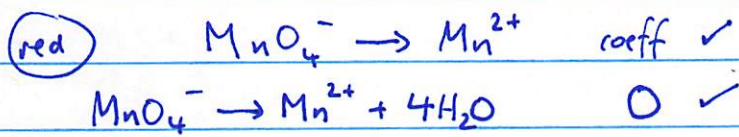 red MnO₄⁻ → Mn²⁺ coeff ✓
MnO₄⁻ → Mn²⁺ + 4H₂O O ✓